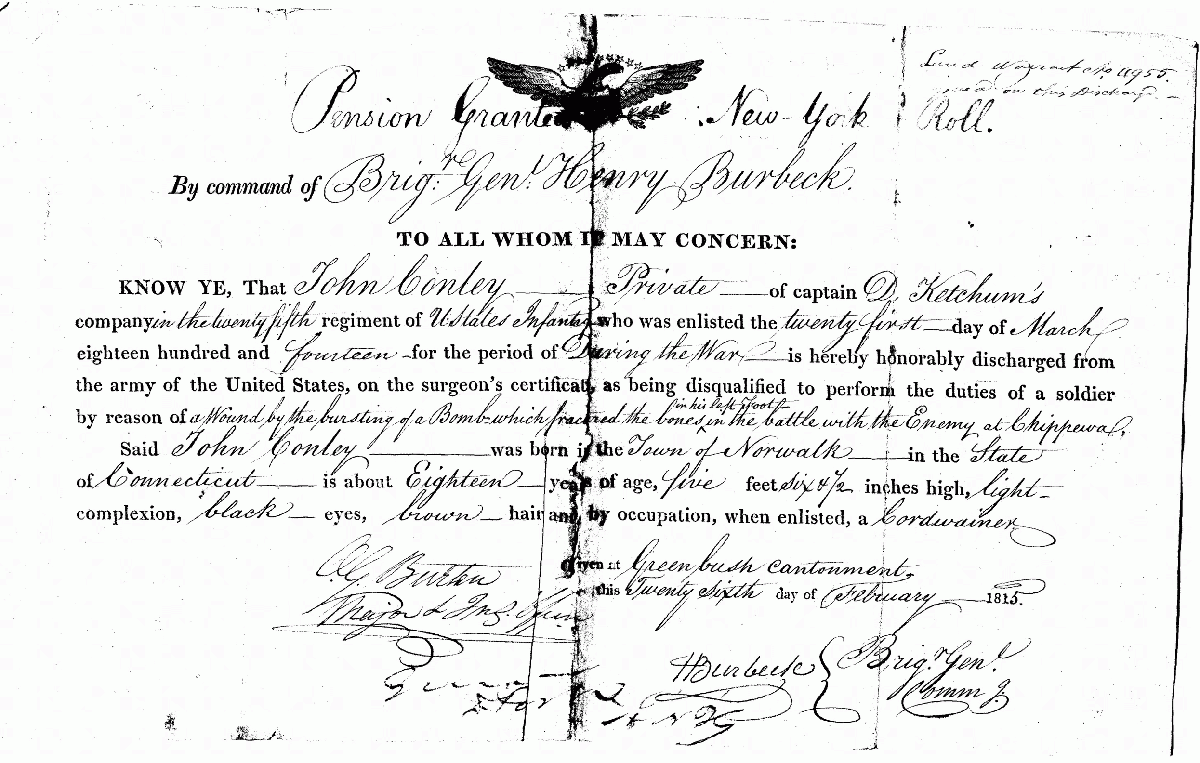 Land Warrant No 11955.
on this Discharge
Pension Granted : New-York Roll.
By command of Brigr. Genl. Henry Burbeck.
TO ALL WHOM IT MAY CONCERN:
KNOW YE, That John Conley a Private of captain D. Ketchum's
company in the twenty fifth regiment of U States Infantry who was enlisted the twenty first day of March
eighteen hundred and fourteen for the period of During the War is hereby honorably discharged from
the army of the United States, on the surgeon's certificate, as being disqualified to perform the duties of a soldier
in his left foot
by reason of a Wound by the bursting of a Bomb which fractured the bones in the battle with the Enemy at Chippewa.
Said John Conley was born in the Town of Norwalk in the State
of Connecticut is about Eighteen years of age, five feet six & 1/2 inches high, light
complexion, black eyes, brown hair and, by occupation, when enlisted, a Cordwainer
Given at Greenbush cantonment,
this Twenty sixth day of February 1815.
Major &
HBurbeck Brigr. Genl.
Comm g